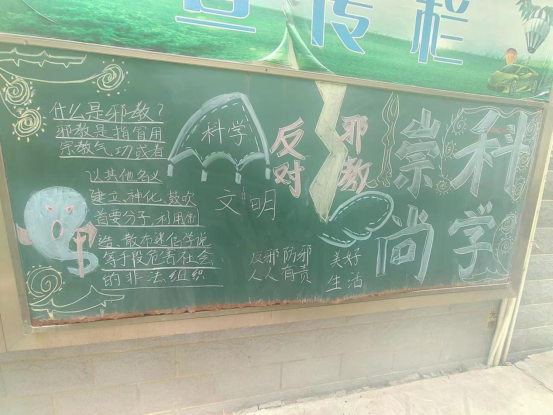 宣传栏
什么是邪教?
邪教是指冒用
宗教气功或者
以其他名义
建立、神化、鼓吹
首要分子,利用制
造、散布迷信学说
等手段危害社会
的非法组织
科学
文明
反对
邪教
反邪防邪
人人有责
美好
生活
崇尚
科学